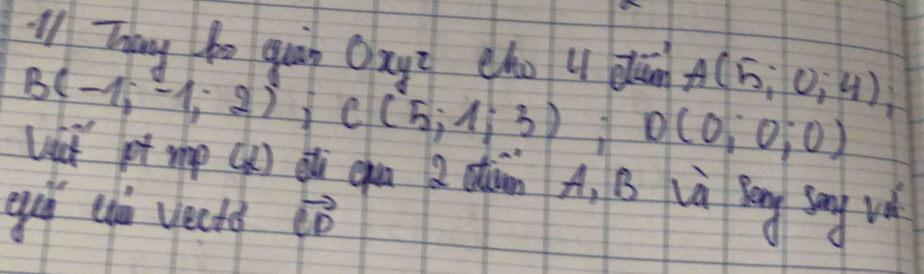 1/ Trong ko gian Oxyz cho 4 điểm A(5; 0; 4);
B(-1; -1; 2); C(5; 1; 3); D(0; 0; 0)
Viết pt mp (α) đi qua 2 điểm A, B và song song với
giá của vectơ \overrightarrow{CD}